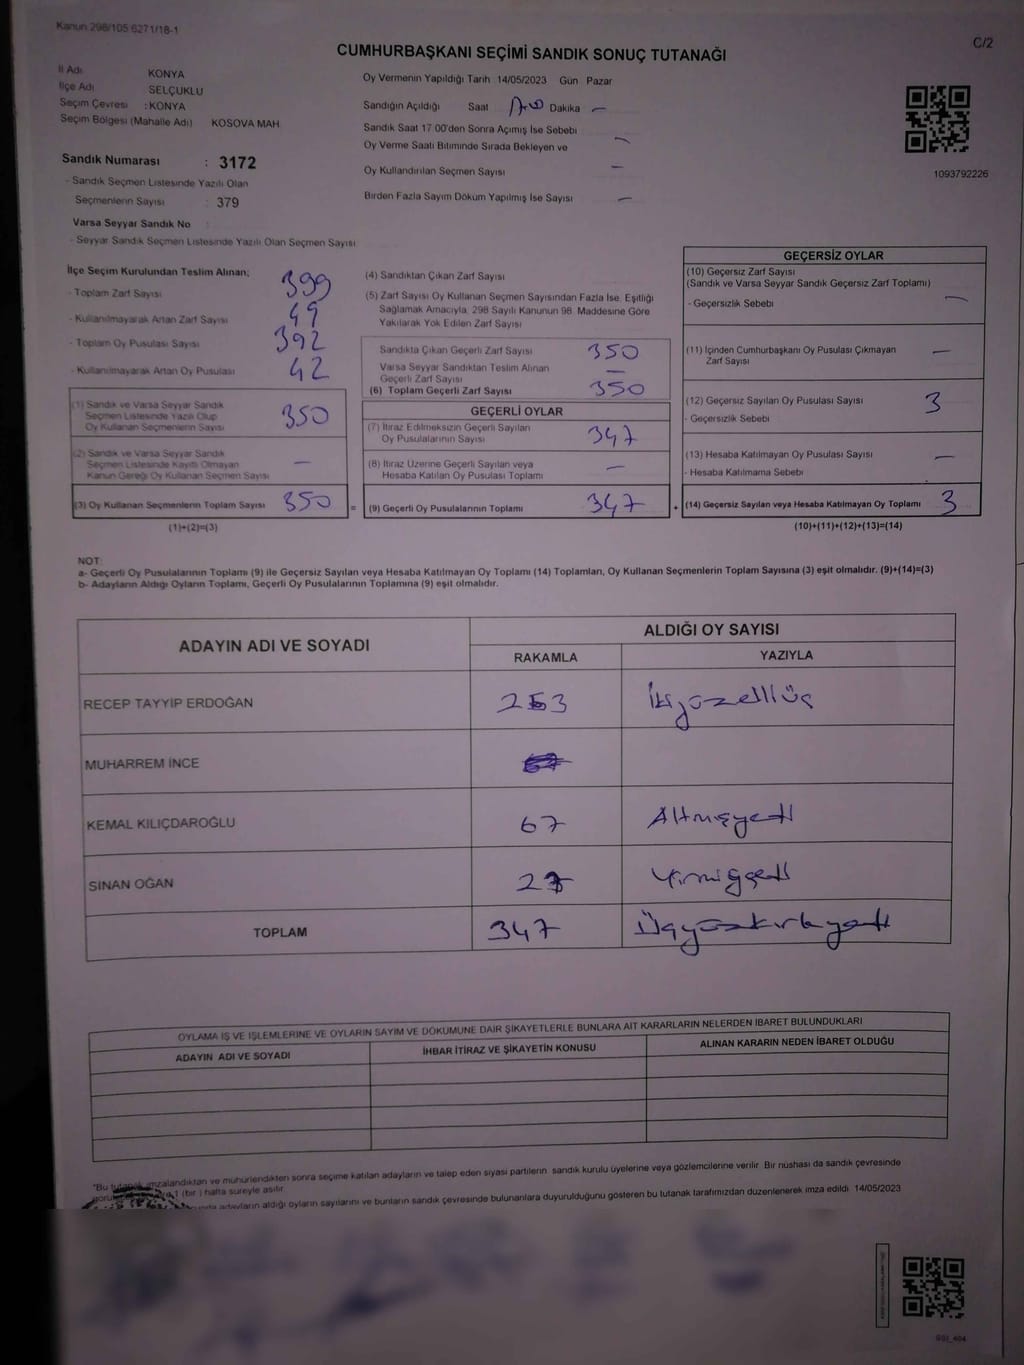 Kanun 298/105 6271/18-1
C/2
CUMHURBAŞKANI SEÇİMİ SANDIK SONUÇ TUTANAĞI
İl Adı KONYA
İlçe Adı SELÇUKLU
Seçim Çevresi : KONYA
Seçim Bölgesi (Mahalle Adı) KOSOVA MAH
Sandık Numarası : 3172
- Sandık Seçmen Listesinde Yazılı Olan
Seçmenlerin Sayısı : 379
Varsa Seyyar Sandık No
- Seyyar Sandık Seçmen Listesinde Yazılı Olan Seçmen Sayısı
Oy Vermenin Yapıldığı Tarih 14/05/2023 Gün Pazar
Sandığın Açıldığı Saat Dakika —
Sandık Saat 17.00'den Sonra Açımış İse Sebebi
Oy Verme Saati Bitiminde Sırada Bekleyen ve —
Oy Kullandırılan Seçmen Sayısı —
Birden Fazla Sayım Döküm Yapılmış İse Sayısı —
1093792226
İlçe Seçim Kurulundan Teslim Alınan;
- Toplam Zarf Sayısı 399
- Kullanılmayarak Artan Zarf Sayısı 49
- Toplam Oy Pusulası Sayısı 392
- Kullanılmayarak Artan Oy Pusulası 42
(1) Sandık ve Varsa Seyyar Sandık
Seçmen Listesinde Yazılı Olup
Oy Kullanan Seçmenlerin Sayısı 350
(2) Sandık ve Varsa Seyyar Sandık
Seçmen Listesinde Kayıtlı Olmayan
Kanun Gereği Oy Kullanan Seçmen Sayısı —
(3) Oy Kullanan Seçmenlerin Toplam Sayısı 350
(1)+(2)=(3)
(4) Sandıktan Çıkan Zarf Sayısı
(5) Zarf Sayısı Oy Kullanan Seçmen Sayısından Fazla İse, Eşitliği
Sağlamak Amacıyla, 298 Sayılı Kanunun 98. Maddesine Göre
Yakılarak Yok Edilen Zarf Sayısı
Sandıkta Çıkan Geçerli Zarf Sayısı 350
Varsa Seyyar Sandıktan Teslim Alınan
Geçerli Zarf Sayısı —
(6) Toplam Geçerli Zarf Sayısı 350
GEÇERLİ OYLAR
(7) İtiraz Edilmeksizin Geçerli Sayılan
Oy Pusulalarının Sayısı 347
(8) İtiraz Üzerine Geçerli Sayılan veya
Hesaba Katılan Oy Pusulası Toplamı —
= (9) Geçerli Oy Pusulalarının Toplamı 347
GEÇERSİZ OYLAR
(10) Geçersiz Zarf Sayısı
(Sandık ve Varsa Seyyar Sandık Geçersiz Zarf Toplamı)
- Geçersizlik Sebebi —
(11) İçinden Cumhurbaşkanı Oy Pusulası Çıkmayan
Zarf Sayısı —
(12) Geçersiz Sayılan Oy Pusulası Sayısı 3
- Geçersizlik Sebebi
(13) Hesaba Katılmayan Oy Pusulası Sayısı —
- Hesaba Katılmama Sebebi
+ (14) Geçersiz Sayılan veya Hesaba Katılmayan Oy Toplamı 3
(10)+(11)+(12)+(13)=(14)
NOT:
a- Geçerli Oy Pusulalarının Toplamı (9) ile Geçersiz Sayılan veya Hesaba Katılmayan Oy Toplamı (14) Toplamları, Oy Kullanan Seçmenlerin Toplam Sayısına (3) eşit olmalıdır. (9)+(14)=(3)
b- Adayların Aldığı Oyların Toplamı, Geçerli Oy Pusulalarının Toplamına (9) eşit olmalıdır.
ADAYIN ADI VE SOYADI
ALDIĞI OY SAYISI
RAKAMLA YAZIYLA
RECEP TAYYİP ERDOĞAN 253 İkiyüzelliüç
MUHARREM İNCE
KEMAL KILIÇDAROĞLU 67 Altmışyedi
SİNAN OĞAN 27 Yirmiyedi
TOPLAM 347 Üçyüzkırkyedi
OYLAMA İŞ VE İŞLEMLERİNE VE OYLARIN SAYIM VE DÖKÜMÜNE DAİR ŞİKAYETLERLE BUNLARA AİT KARARLARIN NELERDEN İBARET BULUNDUKLARI
ADAYIN ADI VE SOYADI İHBAR İTİRAZ VE ŞİKAYETİN KONUSU ALINAN KARARIN NEDEN İBARET OLDUĞU
"Bu tutanak imzalandıktan ve mühürlendikten sonra seçime katılan adayların ve talep eden siyasi partilerin sandık kurulu üyelerine veya gözlemcilerine verilir. Bir nüshası da sandık çevresinde
1 (bir) hafta süreyle asılır.
adayların aldığı oyların sayılarını ve bunların sandık çevresinde bulunanlara duyurulduğunu gösteren bu tutanak tarafımızdan düzenlenerek imza edildi. 14/05/2023